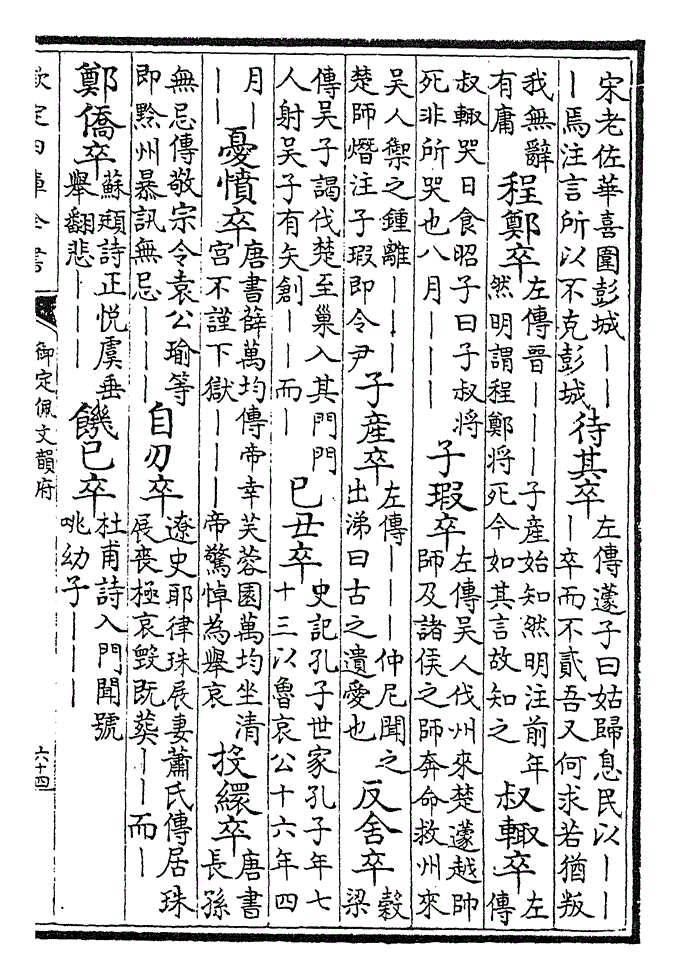 宋老佐華喜圍彭城——
—焉注言所以不克彭城
待其卒
左傳薳子曰姑歸息民以——
—卒而不貳吾又何求若猶叛
我無辭
有庸
程鄭卒
左傳晉———子產始知然明注前年
然明謂程鄭將死今如其言故知之
叔輒卒
左
傳
叔輒哭日食昭子曰子叔將
死非所哭也八月———
子瑕卒
左傳吳人伐州來楚薳越帥
師及諸侯之師奔命救州來
吳人禦之鍾離———
楚師熸注子瑕即令尹
子產卒
左傳———仲尼聞之
出涕曰古之遺愛也
反舍卒
穀
梁
傳吳子謁伐楚至巢入其門門
人射吳子有矢創——而—
己丑卒
史記孔子世家孔子年七
十三以魯哀公十六年四
月—
——
憂憤卒
唐書薛萬均傳帝幸芙蓉園萬均坐清
宮不謹下獄———帝驚悼為舉哀
投繯卒
唐書
長孫
無忌傳敬宗令袁公瑜等
即黔州暴訊無忌———
自刃卒
遼史耶律珠展妻蕭氏傳居珠
展喪極哀毀既葬——而—
鄭僑卒
蘇頲詩正悅虞垂
舉翻悲———
饑已卒
杜甫詩入門聞號
咷幼子———
欽定四庫全書
御定佩文韻府
六十四